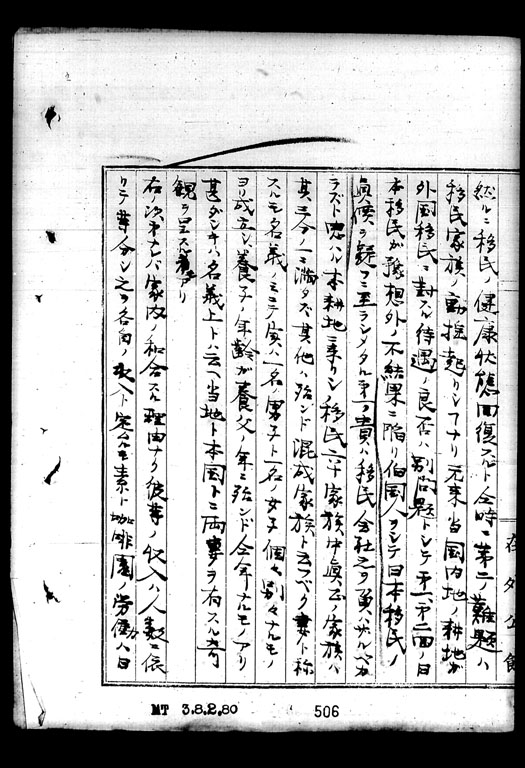 然ルニ移民ノ健康状態回復スルト仝時ニ第二ノ難題ハ
移民家族ノ動揺起リシ了ナリ元来当国内地ノ耕地カ
外国移民ニ対スル待遇ノ良否ハ別問題トシテ第一第二回ノ日
本移民ガ豫想外ノ不結果ニ陥リ伯国人ヲシテ日本移民ノ
真価ヲ疑フニ至ランメタル第一ノ責ハ移民会社之ヲ負ハサルベカ
ラズト思ハル本耕地ニ来リシノ移民六十家族中真正ノ家族ハ
其三分ノ一ニ満タズ其他ハ殆ンド混成家族ト云フベク妻ト称
スルモ名義ノミニテ実ハ一名ノ男子ト一名ノ女子個々別々ナルモノ
ヨリ成立シ養子ノ年齢ガ養父ノ年ニ殆ンド仝年ナルモノアリ
甚ダシキハ名義上トハ云ヘ当地ト本国トニ両妻ヲ有スル奇
観ヲ呈ス者アリ
右ノ次第ナレバ家内ノ和合スル理由ナク彼等ノ収入ハ人数ニ依
リテ等分シ之ヲ各自ノ収入ト定ムルモ素ト珈琲園ノ労働ハ日
在外公館
MT 3.8.2.80
506